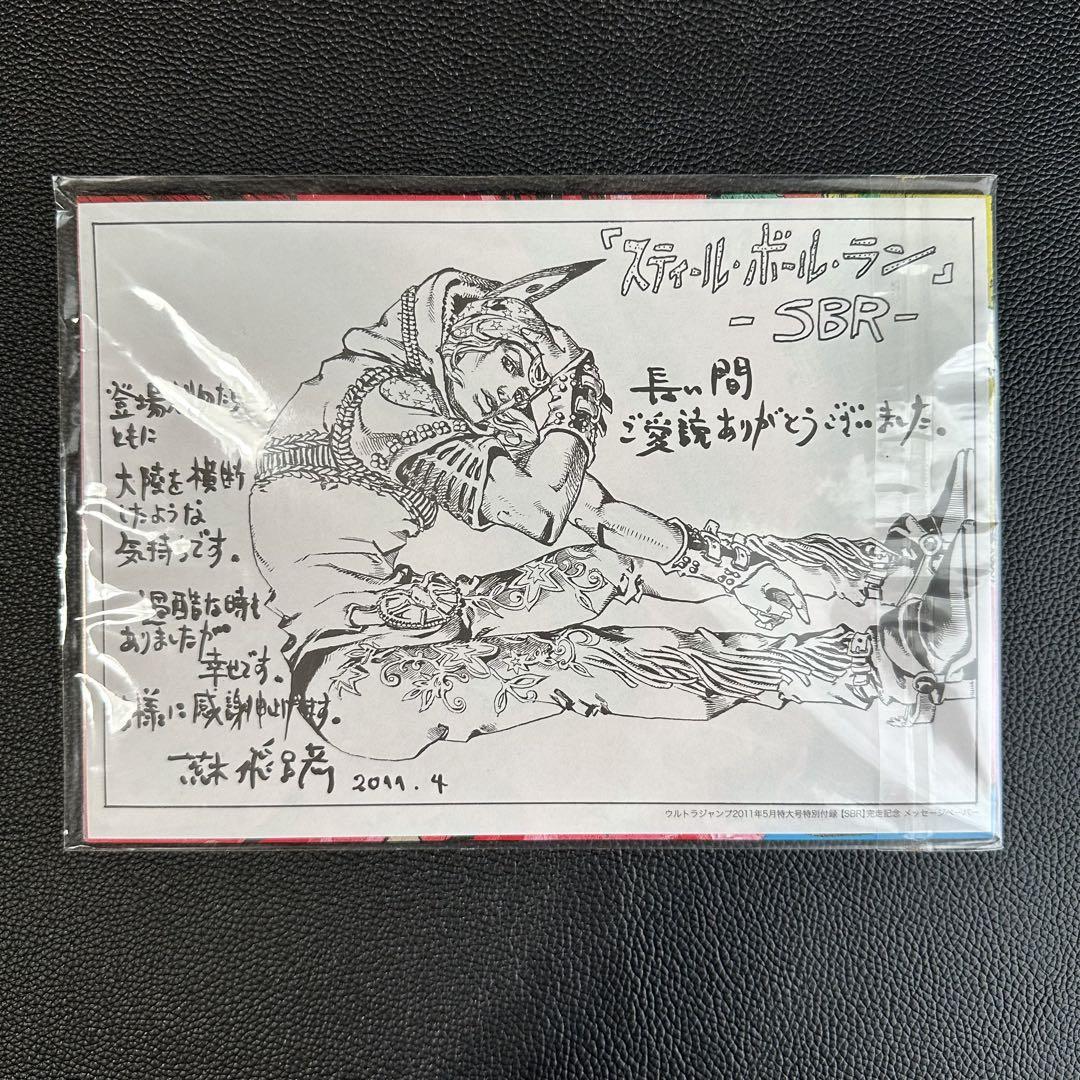 『スティール・ボール・ラン』
- SBR -
長い間
ご愛読ありがとうございました。
登場人物たち
ともに
大陸を横断
したような
気持ちです。
過酷な時も
ありましたが
幸せです。
様に感謝申し上げます。
荒木飛呂彦
2011.4
ウルトラジャンプ2011年5月特大号特別付録【SBR】完走記念 メッセージペーパー